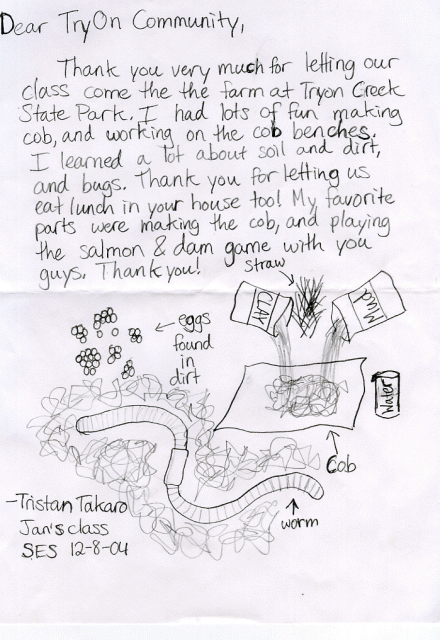 Dear TryOn Community,
Thank you very much for letting our
class come the the farm at Tryon Creek
State Park. I had lots of fun making
cob, and working on the cob benches.
I learned a lot about soil and dirt,
and bugs. Thank you for letting us
eat lunch in your house too! My favorite
parts were making the cob, and playing
the salmon & dam game with you
guys. Thank you!
straw
CLAY
Mud
eggs
found
in
dirt
water
Cob
worm
-Tristan Takaro
Jan's class
SES 12-8-04